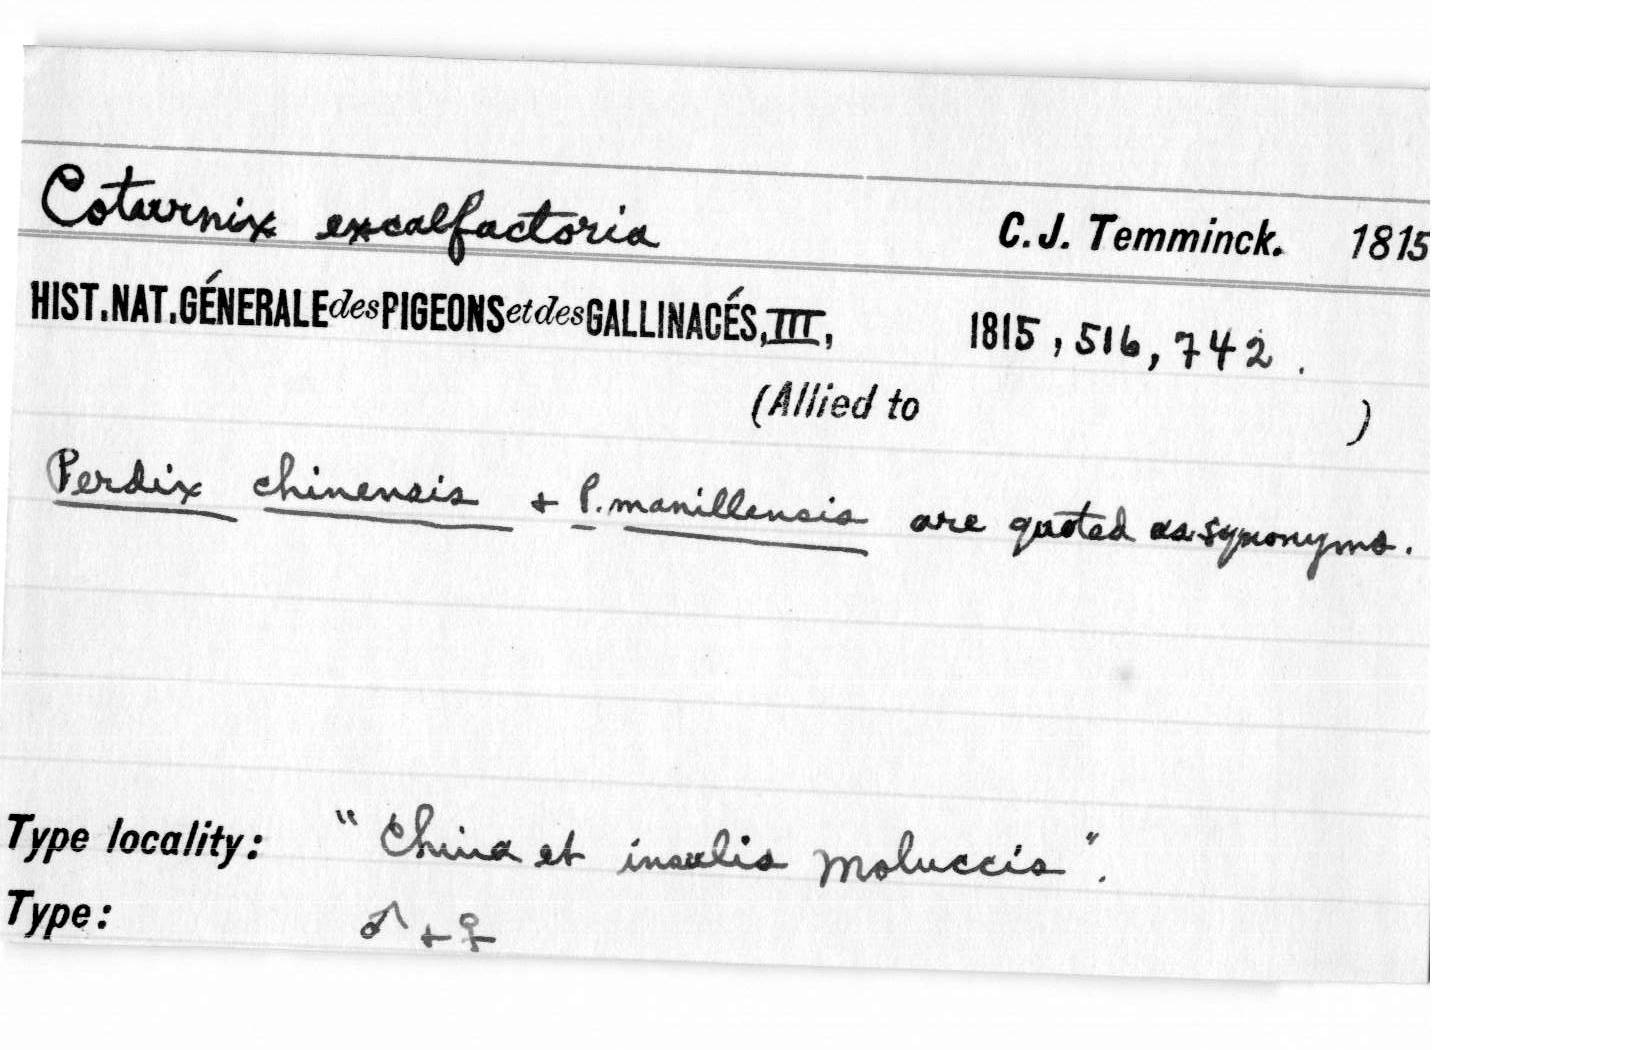 Coturnix excalfactoria C.J. Temminck. 1815
HIST.NAT.GÉNERALE des PIGEONS et des GALLINACÉS, III, 1815, 516, 742.
(Allied to )
Perdix chinensis + P. manillensis are quoted as synonyms.
Type locality: "China et insulis Moluccis".
Type: ♂ + ♀